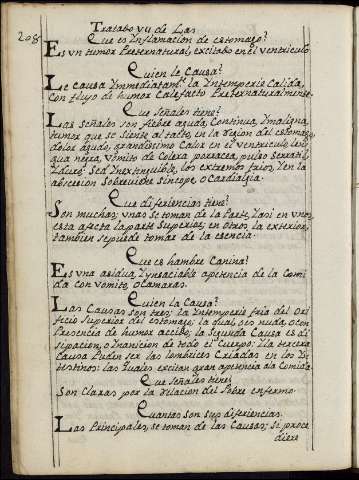 208
Tratado VII de Las
Que es Inflamacion de estomago?
Es un tumor Preternatural, excitado en el ventriculo.
Quien le Causa?
Le causa Ymmediatamte la Yntemperie Calida,
Con fluxo de humor Calefacto Preternaturalmente.
Que Señales tiene?
Las Señales son fiebre aguda, Continua, Ymaligna,
tumor que se siente al tacto, en la Region del estomago,
dolor agudo, grandissimo Calor en el ventriculo, len
gua negra, Vomito de Colera porracea, pulso Serratil,
Yduro: Sed Ynextinguible, los extremos frios, Yen la
abscecion Sobreviene sincope, o Cardialgia.
Que diferiencias tiene?
Son muchas; unas se toman de la Parte, Yasi en unos
esta afecta la parte Superior; en otros, la exterior,
tambien se puede tomar de la esencia.
Que es hambre Canina?
Es una asidua, Ynsaciable apetencia de la Comi
da con Vomito, o Camaras.
Quien la Causa?
Las Causas son tres; la Yntemperie fria del Ori
ficio Superior del estomago; la dual, o es nuda, o con
Presencia de humor accido; la Segunda Causa es di
sipacion, o Ynanicion de todo el Cuerpo: Ila tercera
Causa Puden ser las lombrices Criadas en los In
testinos: las quales excitan gran apetencia a la Comida.
Que señales tiene?
Son Claras por la relacion del Pobre enfermo.
Quantas son sus diferiencias.
Las Principales, se toman de las Causas; si proce
diere